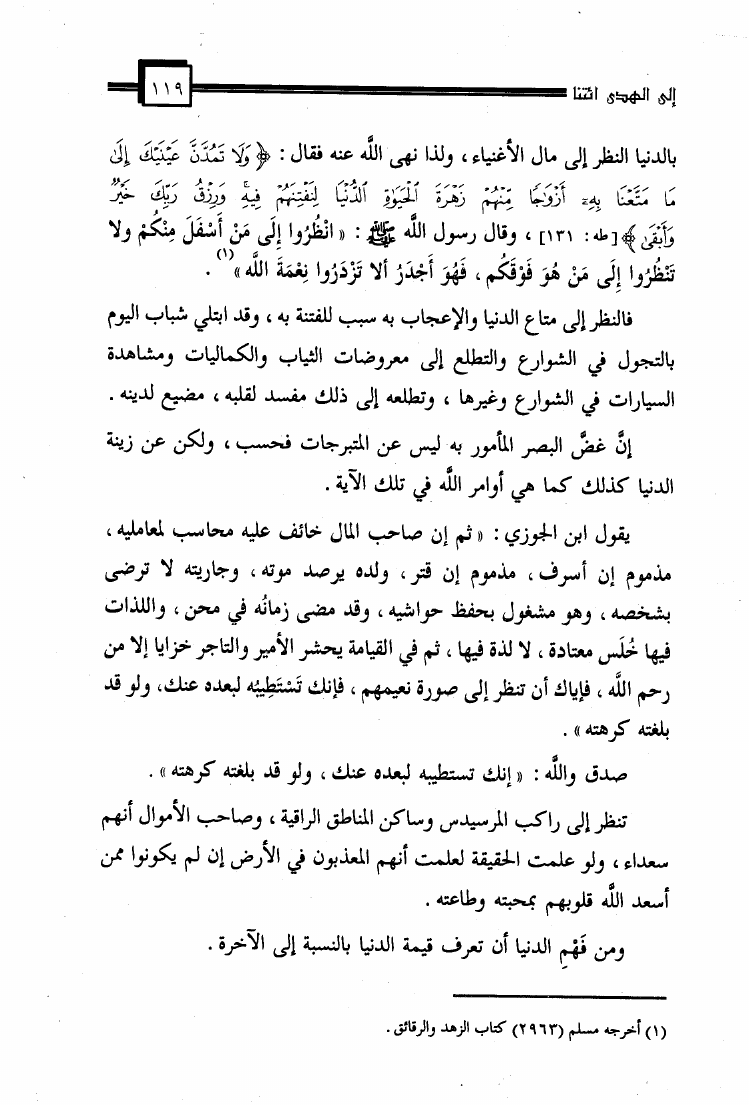 إلى الهدى ائتنا
١١٩
بالدنيا النظر إلى مال الأغنياء ، ولذا نهى اللَّه عنه فقال : ﴿ وَلَا تَمُدَّنَّ عَيْنَيْكَ إِلَىٰ
مَا مَتَّعْنَا بِهِۦٓ أَزْوَٰجًا مِّنْهُمْ زَهْرَةَ ٱلْحَيَوٰةِ ٱلدُّنْيَا لِنَفْتِنَهُمْ فِيهِ ۚ وَرِزْقُ رَبِّكَ خَيْرٌ
وَأَبْقَىٰ ﴾ [طه: ١٣١] ، وقال رسول اللَّه ﷺ : « انْظُرُوا إِلَى مَنْ أَسْفَلَ مِنْكُمْ ولا
تَنْظُرُوا إِلَى مَنْ هُوَ فَوْقَكُم ، فَهُوَ أَجْدَرُ ألا تَزْدَرُوا نِعْمَةَ اللَّه » (١) .
فالنظر إلى متاع الدنيا والإعجاب به سبب للفتنة به ، وقد ابتلي شباب اليوم
بالتجول في الشوارع والتطلع إلى معروضات الثياب والكماليات ومشاهدة
السيارات في الشوارع وغيرها ، وتطلعه إلى ذلك مفسد لقلبه ، مضيع لدينه .
إنَّ غضَّ البصر المأمور به ليس عن المتبرجات فحسب ، ولكن عن زينة
الدنيا كذلك كما هي أوامر اللَّه في تلك الآية .
يقول ابن الجوزي : « ثم إن صاحب المال خائف عليه محاسب لمعامليه ،
مذموم إن أسرف ، مذموم إن قتر ، ولده يرصد موته ، وجاريته لا ترضى
بشخصه ، وهو مشغول بحفظ حواشيه ، وقد مضى زمانُه في محن ، واللذات
فيها خُلَس معتادة ، لا لذة فيها ، ثم في القيامة يحشر الأمير والتاجر خزايا إلا من
رحم اللَّه ، فإياك أن تنظر إلى صورة نعيمهم ، فإنك تَسْتَطِيبُه لبعده عنك، ولو قد
بلغته كرهته » .
صدق واللَّه : « إنك تستطيبه لبعده عنك ، ولو قد بلغته كرهته » .
تنظر إلى راكب المرسيدس وساكن المناطق الراقية ، وصاحب الأموال أنهم
سعداء ، ولو علمت الحقيقة لعلمت أنهم المعذبون في الأرض إن لم يكونوا ممن
أسعد اللَّه قلوبهم بمحبته وطاعته .
ومن فَهْمِ الدنيا أن تعرف قيمة الدنيا بالنسبة إلى الآخرة .
(١) أخرجه مسلم (٢٩٦٣) كتاب الزهد والرقائق .